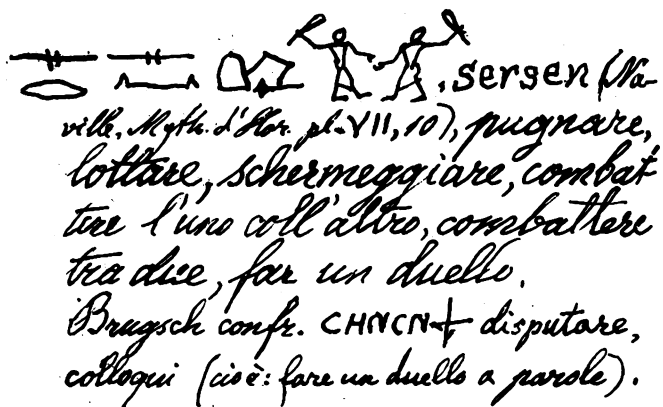 𓊃𓂋𓊃𓈖, sersen (Na-
ville, Myth. d'Hor. pl. VII, 10), pugnare,
lottare, schermeggiare, combat-
tere l'uno coll'altro, combattere
tra due, far un duello.
Brugsch confr. ϹΗΝϹΝϯ disputare,
colloqui (cioè: fare un duello a parole).